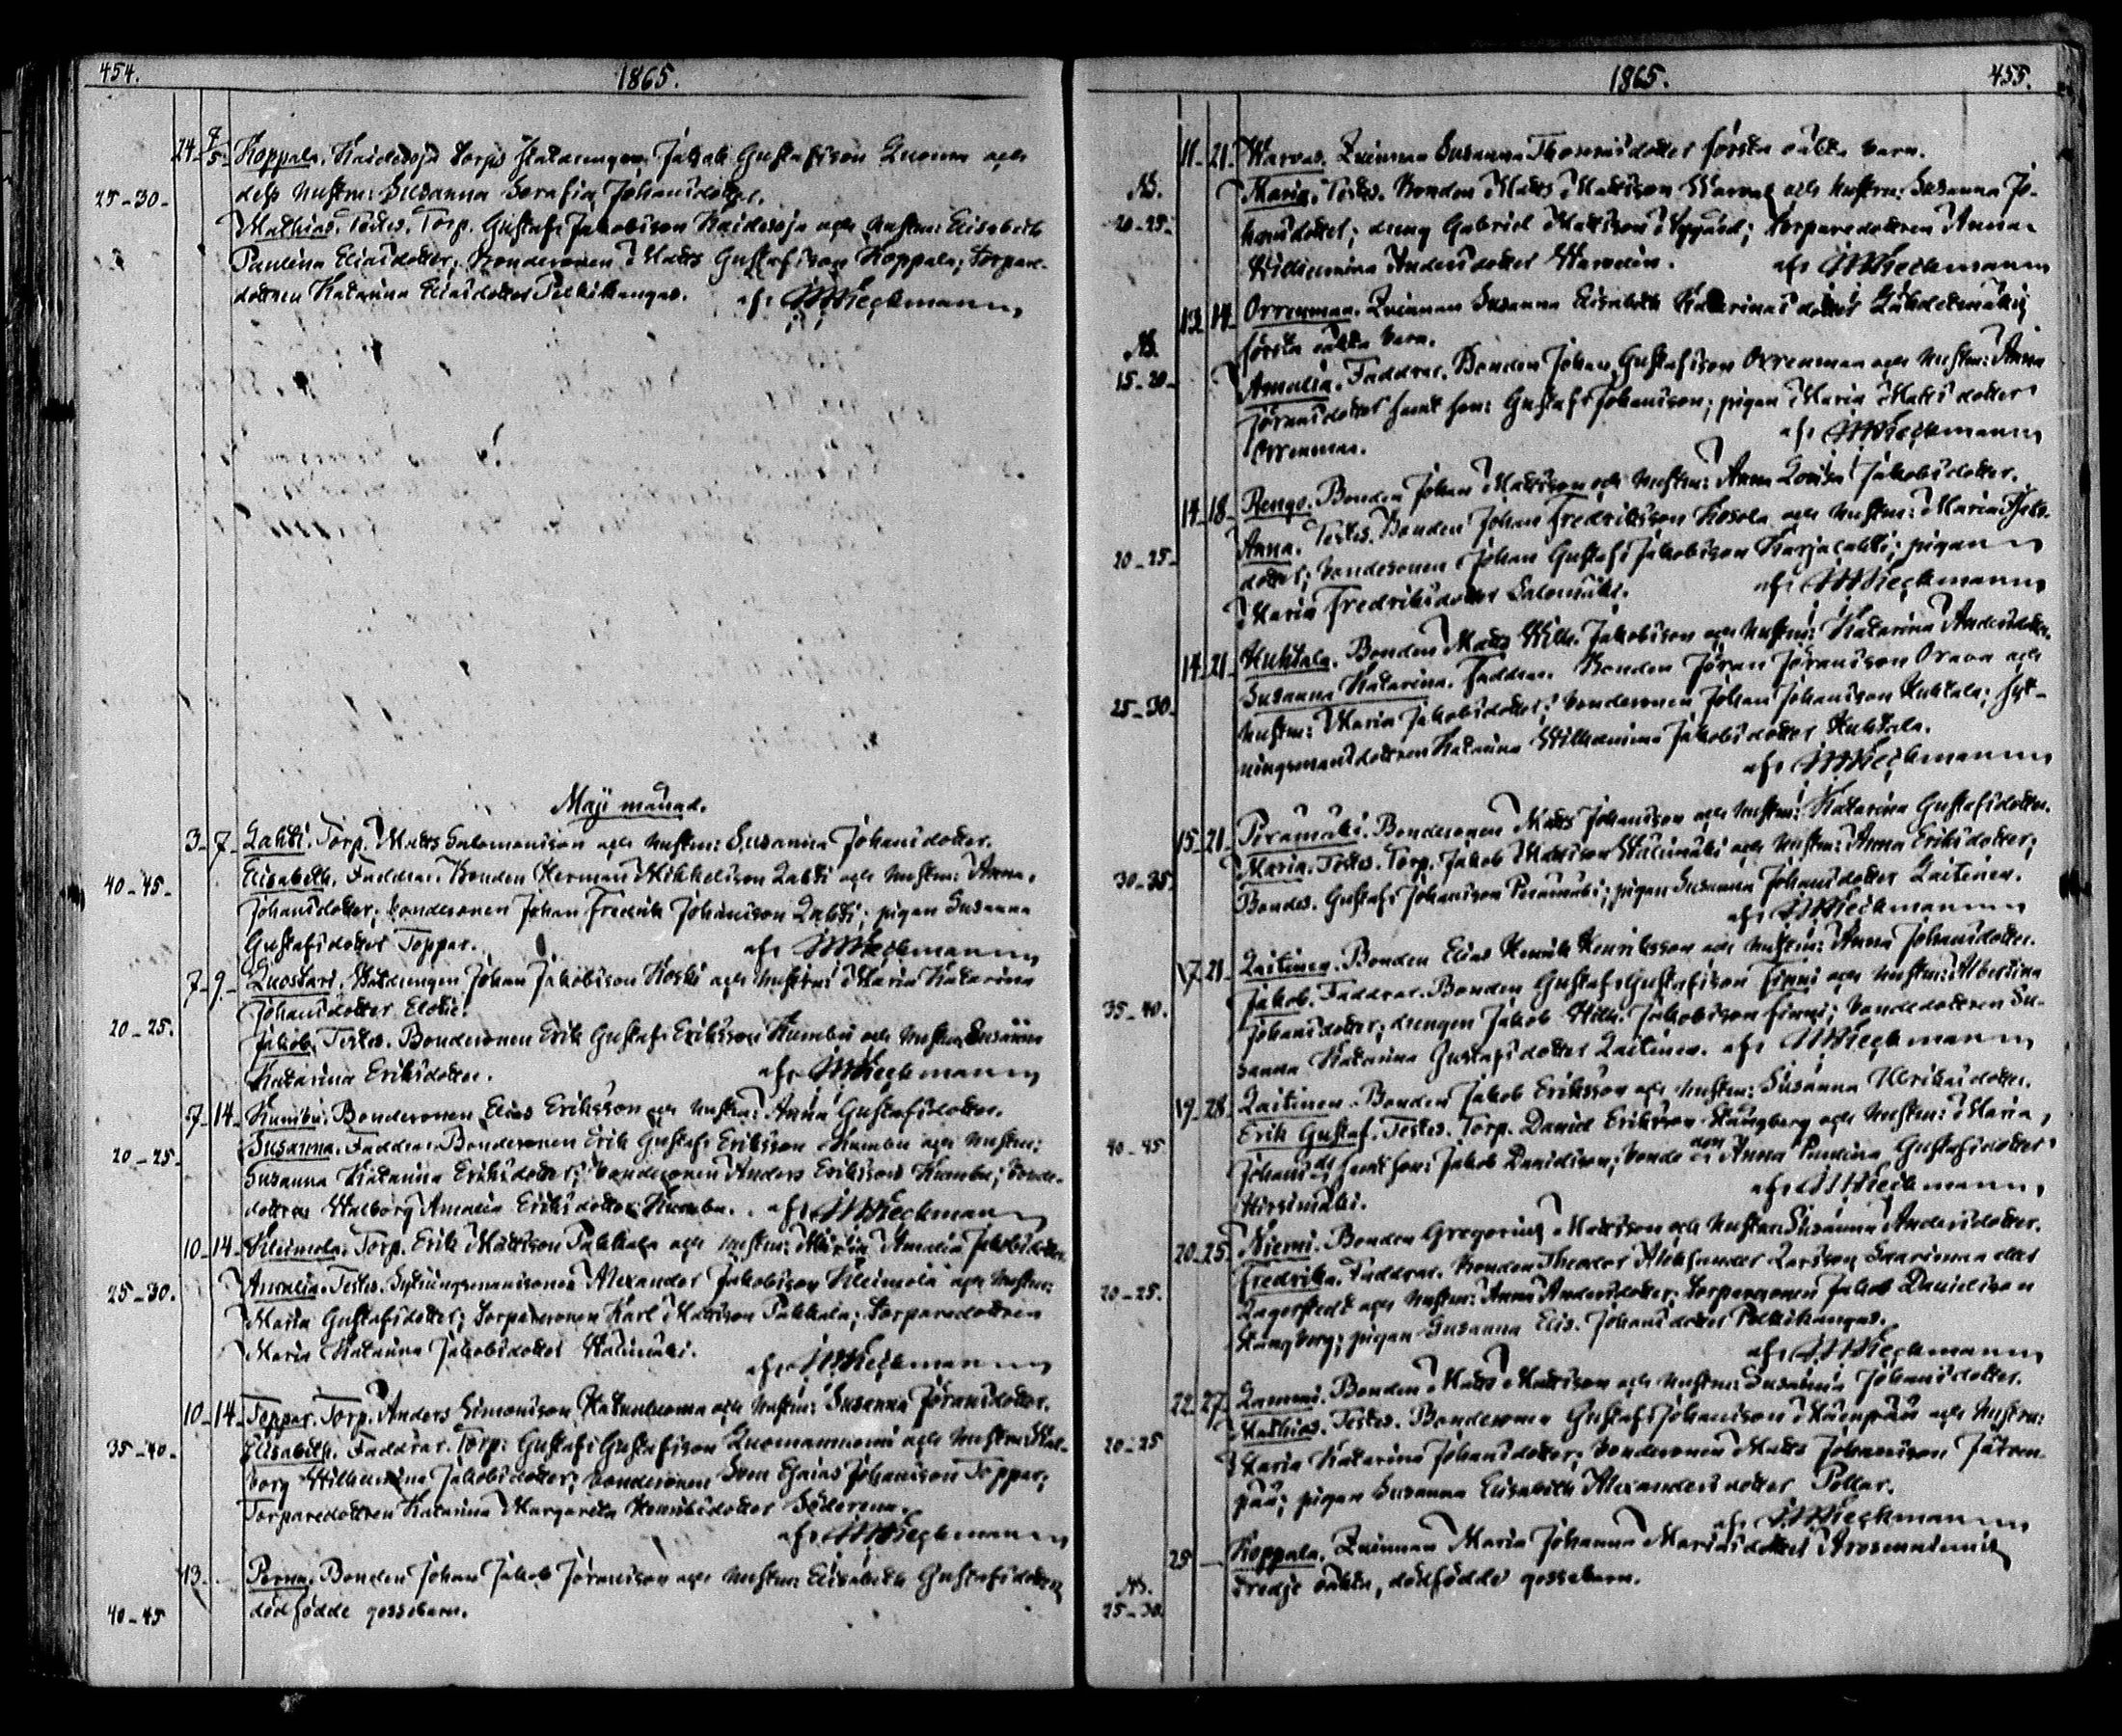 454. 1865.
24 7/5 Koppala. Kaidesoja torps statdrengen Jakob Gustafsson Luoma och
25-30. dess hustru: Susanna Serafia Johansdotter.
Mathias. Testes. Torp. Gustaf Jakobsson Kaidesoja och hustru: Elisabeth
Paulina Eliasdotter; bondesonen Matts Gustafsson Koppala; torpare-
dottren Katarina Eliasdotter Pelkikangas. af: Wieckmann
Maji månad.
3. 7. Lahti. Torp. Matts Salomonsson och hustru: Susanna Johansdotter.
40-45. Elisabeth. Faddrar. Bonden Herman Mikkelsson Lahti och hustru: Anna
Johansdotter; bondesonen Johan Fredrik Johansson Lahti; pigan Susanna
Gustafsdotter Toppar. af: Wieckmann
7. 9. Luostari. Johan Jakobsson Koski och hustru: Maria Katarina
Johansdotter
20-25. Jakob. Testes. Bondesonen Erik Gustaf Eriksson Kumbu och hustru Susanna
Katarina Eriksdotter. af: Wieckmann
7. 14. Kumbu. Bondesonen Elias Eriksson och hustru: Anna Gustafsdotter.
20-25. Susanna. Faddrar. Bondesonen Erik Gustaf Eriksson Kumbu och hustru:
Susanna Katarina Eriksdotter; bondesonen Anders Eriksson Kumbu; bonde-
dottren Walborg Amalia Eriksdotter Kumbu. af: Wieckmann
10. 14. Kleimola. Torp. Erik Mattsson Pakkala och hustru: Maria Amalia Jakobsdotter.
25-30. Amalia. Testes. Sytningsmanssonen Alexander Jakobsson Kleimola och hustru:
Maria Gustafsdotter; torparesonen Karl Mattsson Pakkala; torparedottren
Maria Katarina Jakobsdotter Kalimäki. af: Wieckmann
10. 14. Toppar. Torp. Anders Simonsson Katuluoma och hustru: Susanna Jöransdotter.
35-40. Elisabeth. Faddrar. Torp: Gustaf Gustafsson Luomanniemi och hustru: Wal-
borg Wilhelmina Jakobsdotter; bondesonen Sven Esaias Johansson Toppar;
Torparedottren Katarina Margareta Henriksdotter
af: Wieckmann
13. Perna. Bonden Johan Jakob Jöransson och hustru: Elisabeth Gustafsdotter
40-45 dödfödde gossebarn.
1865. 455.
11. 21. Warvas. Qvinnan Susanna Thomasdotter första oäkta barn.
20-25. Maria. Testes. Bonden Matts Mattsson Warvas och hustru: Susanna Jo-
hansdotter; dreng Gabriel Mattsson torparedottren Anna
Willhemina Andersdotter af: Wieckmann
13. 14. Orrenmaa. Qvinnan Susanna Elisabeth Katarinasdotter Lähdetmäki
första oäkta barn.
15-20. Amalia. Faddrar. Bonden Johan Gustafsson Orrenmaa och hustru: Anna
Jöransdotter samt son: Gustaf Johansson; pigan Maria Mattsdotter
Orrenmaa. af: Wieckmann
14. 18. Rengo. Bonden Johan Mattsson och hustru: Anna Lovisa Jakobsdotter.
20-25. Anna. Testes. Bonden Johan Fredriksson Kosola och hustru: Maria
dotter; bondesonen Johan Gustaf Jakobsson Karjalahti; pigan
Maria Fredriksdotter Salomäki. af: Wieckmann
14. 21. Kuhtala. Bonden Matts Wilh. Jakobsson och hustru: Katarina Andersdotter.
25-30. Susanna Katarina. Faddrar. Bonden Jöran Jöransson Orava och
hustru: Maria Jakobsdotter; bondesonen Johan Johansson Kuhtala; syt-
ningsmansdottren Katarina Willhemina Jakobsdotter Kuhtala.
af: Wieckmann
15. 21. Perämäki. Bondesonen Matts Johansson och hustru: Katarina Gustafsdotter.
30-35. Maria. Testes. Torp. Jakob Mattsson Kalimäki och hustru: Anna Eriksdotter;
Bondes. Gustaf Johansson Perämäki; pigan Susanna Johansdotter Laitinen.
af: Wieckmann
17. 21. Laitinen. Bonden Elias Henrik Henriksson och hustru: Anna Johansdotter.
35-40. Jakob. Faddrar. Bonden Gustaf Gustafsson Finni och hustru: Albertina
Johansdotter; drengen Jakob Wilh. Jakobsson Finni; bondedottren Su-
sanna Katarina Gustafsdotter Laitinen. af: Wieckmann
19. 28. Laitinen. Bonden Jakob Eriksson och hustru: Susanna Ulrikasdotter.
40-45 Erik Gustaf. Testes. Torp. Daniel Eriksson Stångberg och hustru: Maria
Johansdr samt son: Jakob Danielsson; bondedottren Anna Paulina Gustafsdotter
Hirsimäki. af: Wieckmann
20. 25. Niemi. Bonden Gregorius Mattsson och hustru: Susanna Andersdotter.
20-25. Fredrika. Faddrar. Bonden Theodor Alexander Larsson Saarimaa eller
Lagerstedt och hustru: Anna Andersdotter; torparesonen Jakob Danielsson
Stångberg; pigan Susanna Elis. Johansdotter Pelkikangas.
af: Wieckmann
22. 27. Lammi. Bonden Matts Mattsson och hustru: Susanna Johansdotter.
20-25 Mathias. Testes. Bondesonen Gustaf Johansson och hustru:
Maria Katarina Johansdotter; bondesonen Matts Johansson
pää; pigan Susanna Elisabeth Alexandersdotter Pollar.
af: Wieckmann
25 Koppala. Qvinnan Maria Johanna Mariasdotter
25-30. tredje oäkta, dödfödde gossebarn.